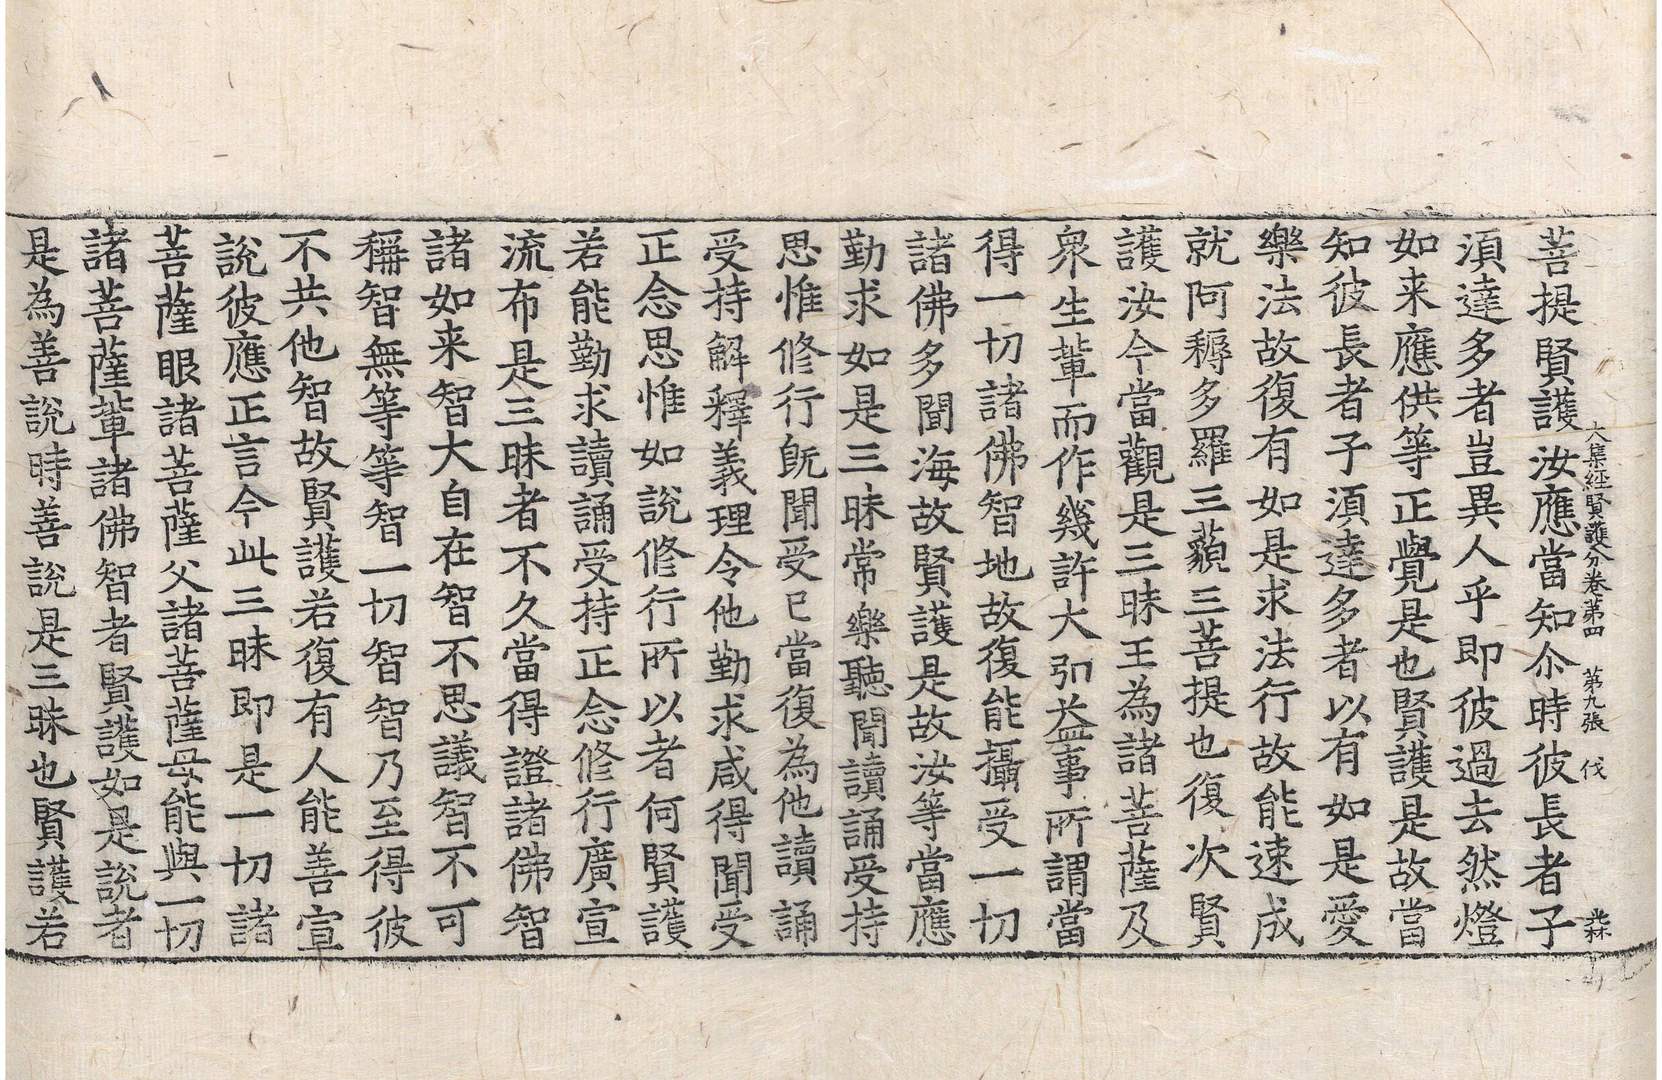 大集經賢護分卷第四 第九張 伐
菩提賢護汝應當知尒時彼長者子
湏達多者豈異人乎即彼過去然燈
如来應供等正覺是也賢護是故當
知彼長者子湏達多者以有如是愛
樂法故復有如是求法行故能速成
就阿耨多羅三藐三菩提也復次賢
護汝今當觀是三昧王為諸菩薩及
衆生輩而作幾許大利益事所謂當
得一切諸佛智地故復能攝受一切
諸佛多聞海故賢護是故汝等當應
勤求如是三昧常樂聽聞讀誦受持
思惟修行旣聞受已當復為他讀誦
受持解釋義理令他勤求咸得聞受
正念思惟如說修行所以者何賢護
若能勤求讀誦受持正念修行廣宣
流布是三昧者不久當得證諸佛智
諸如来智大自在智不思議智不可
稱智無等等智一切智智乃至得彼
不共他智故賢護若復有人能善宣
說彼應正言今此三昧即是一切諸
菩薩眼諸菩薩父諸菩薩母能與一切
諸菩薩輩諸佛智者賢護如是說者
是為善說時善說是三昧也賢護若